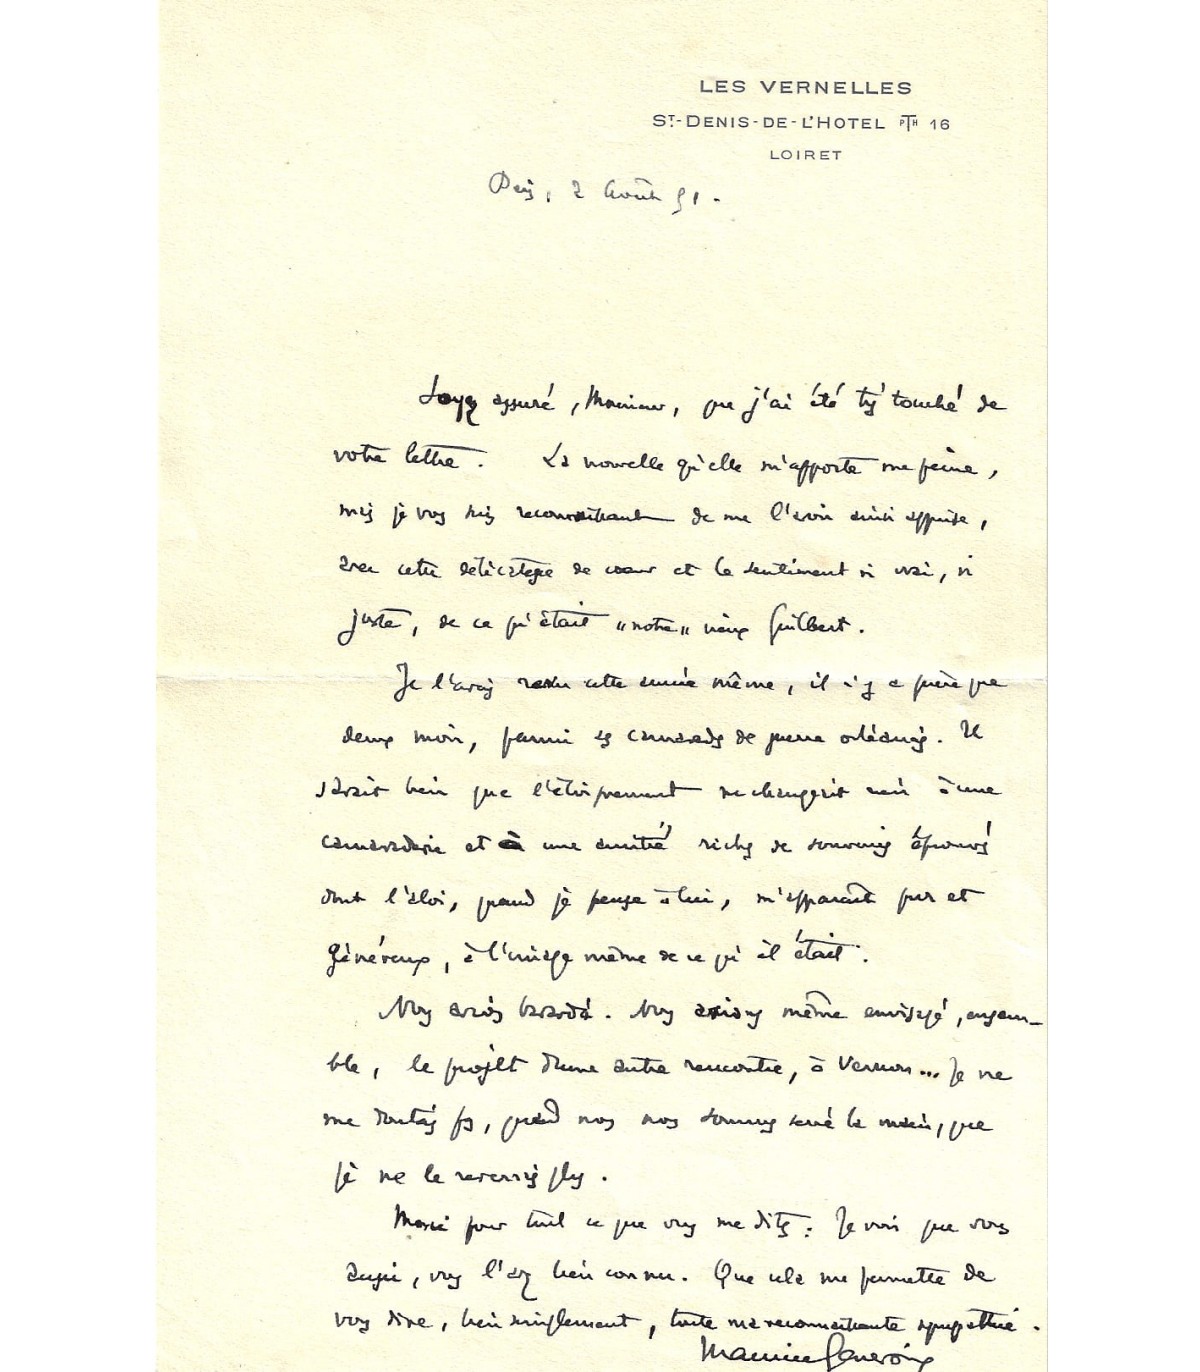 LES VERNELLES
ST-DENIS-DE-L'HOTEL PTH 16
LOIRET
Paris, 2 Août 51.
Soyez assuré, Monsieur, que j'ai été très touché de
votre lettre. La nouvelle qu'elle m'apporte me peine,
mais je vous suis reconnaissant de me l'avoir ainsi apprise,
avec cette délicatesse de cœur et le sentiment si vrai, si
juste, de ce qu'était "notre" vieux Guilbert.
Je l'avais revu cette année même, il n'y a guère que
deux mois, parmi ses camarades de guerre orléanais. Il
savait bien que l'éloignement ne changerait rien à une
camaraderie et à une amitié riches de souvenirs éprouvés
dont l'aloi, quand je pense à lui, m'apparaît pur et
généreux, à l'image même de ce qu'il était.
Nous avions bavardé. Nous avions même envisagé, ensem-
ble, le projet d'une autre rencontre, à Vernon... Je ne
me doutais pas, quand nous nous sommes serré la main, que
je ne le reverrais plus.
Merci pour tout ce que vous me dites. Je vois que vous
aussi, vous l'avez bien connu. Que cela me permette de
vous dire, bien simplement, toute ma reconnaissante sympathie.
Maurice Genevoix